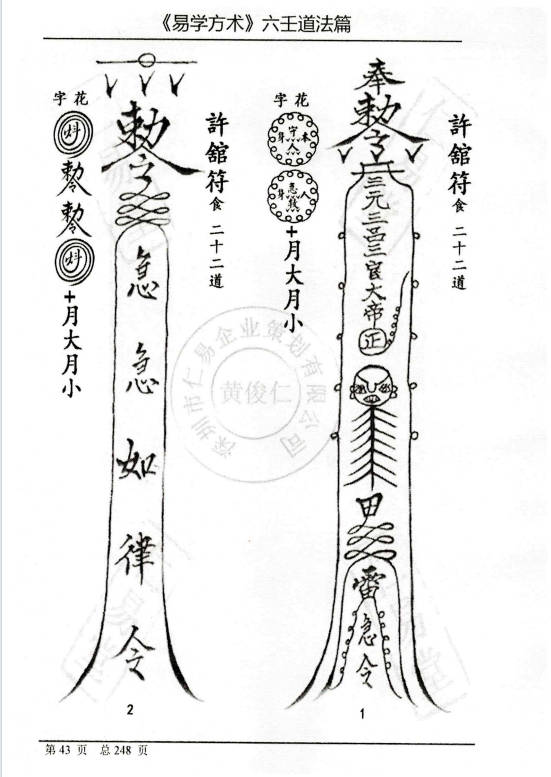 《易学方术》六壬道法篇
許舘符食 二十二道
奉
勅令
三元三宮三官大帝
正
甲
雷
急令
花字
十月大月小
1
許舘符食 二十二道
勅令
急急如律令
花字
勅令
勅令
十月大月小
2
深圳市仁易企业策划有限公司
黄俊仁
第 43 页 总 248 页